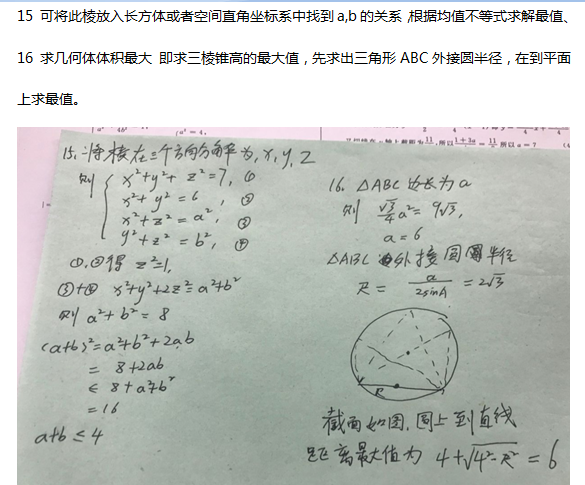 15 可将此棱放入长方体或者空间直角坐标系中找到 a,b 的关系,根据均值不等式求解最值、
16 求几何体体积最大 即求三棱锥高的最大值，先求出三角形 ABC 外接圆半径，在到平面
上求最值。
15. 将棱在三个方向分解为, x, y, z
则 x²+y²+z²=7, ①
x²+y²=6, ②
x²+z²=a², ③
y²+z²=b², ④
①,②得 z²=1,
③+④ x²+y²+2z²=a²+b²
则 a²+b²=8
(a+b)²=a²+b²+2ab
= 8+2ab
≤ 8+a²+b²
=16
a+b≤4
16. △ABC 边长为a
则 √3/4 a²=9√3,
a=6
△ABC 外接圆半径
R = a/2sinA = 2√3
R
截面如图,圆上到直线
距离最大值为 4+√4²-R² = 6